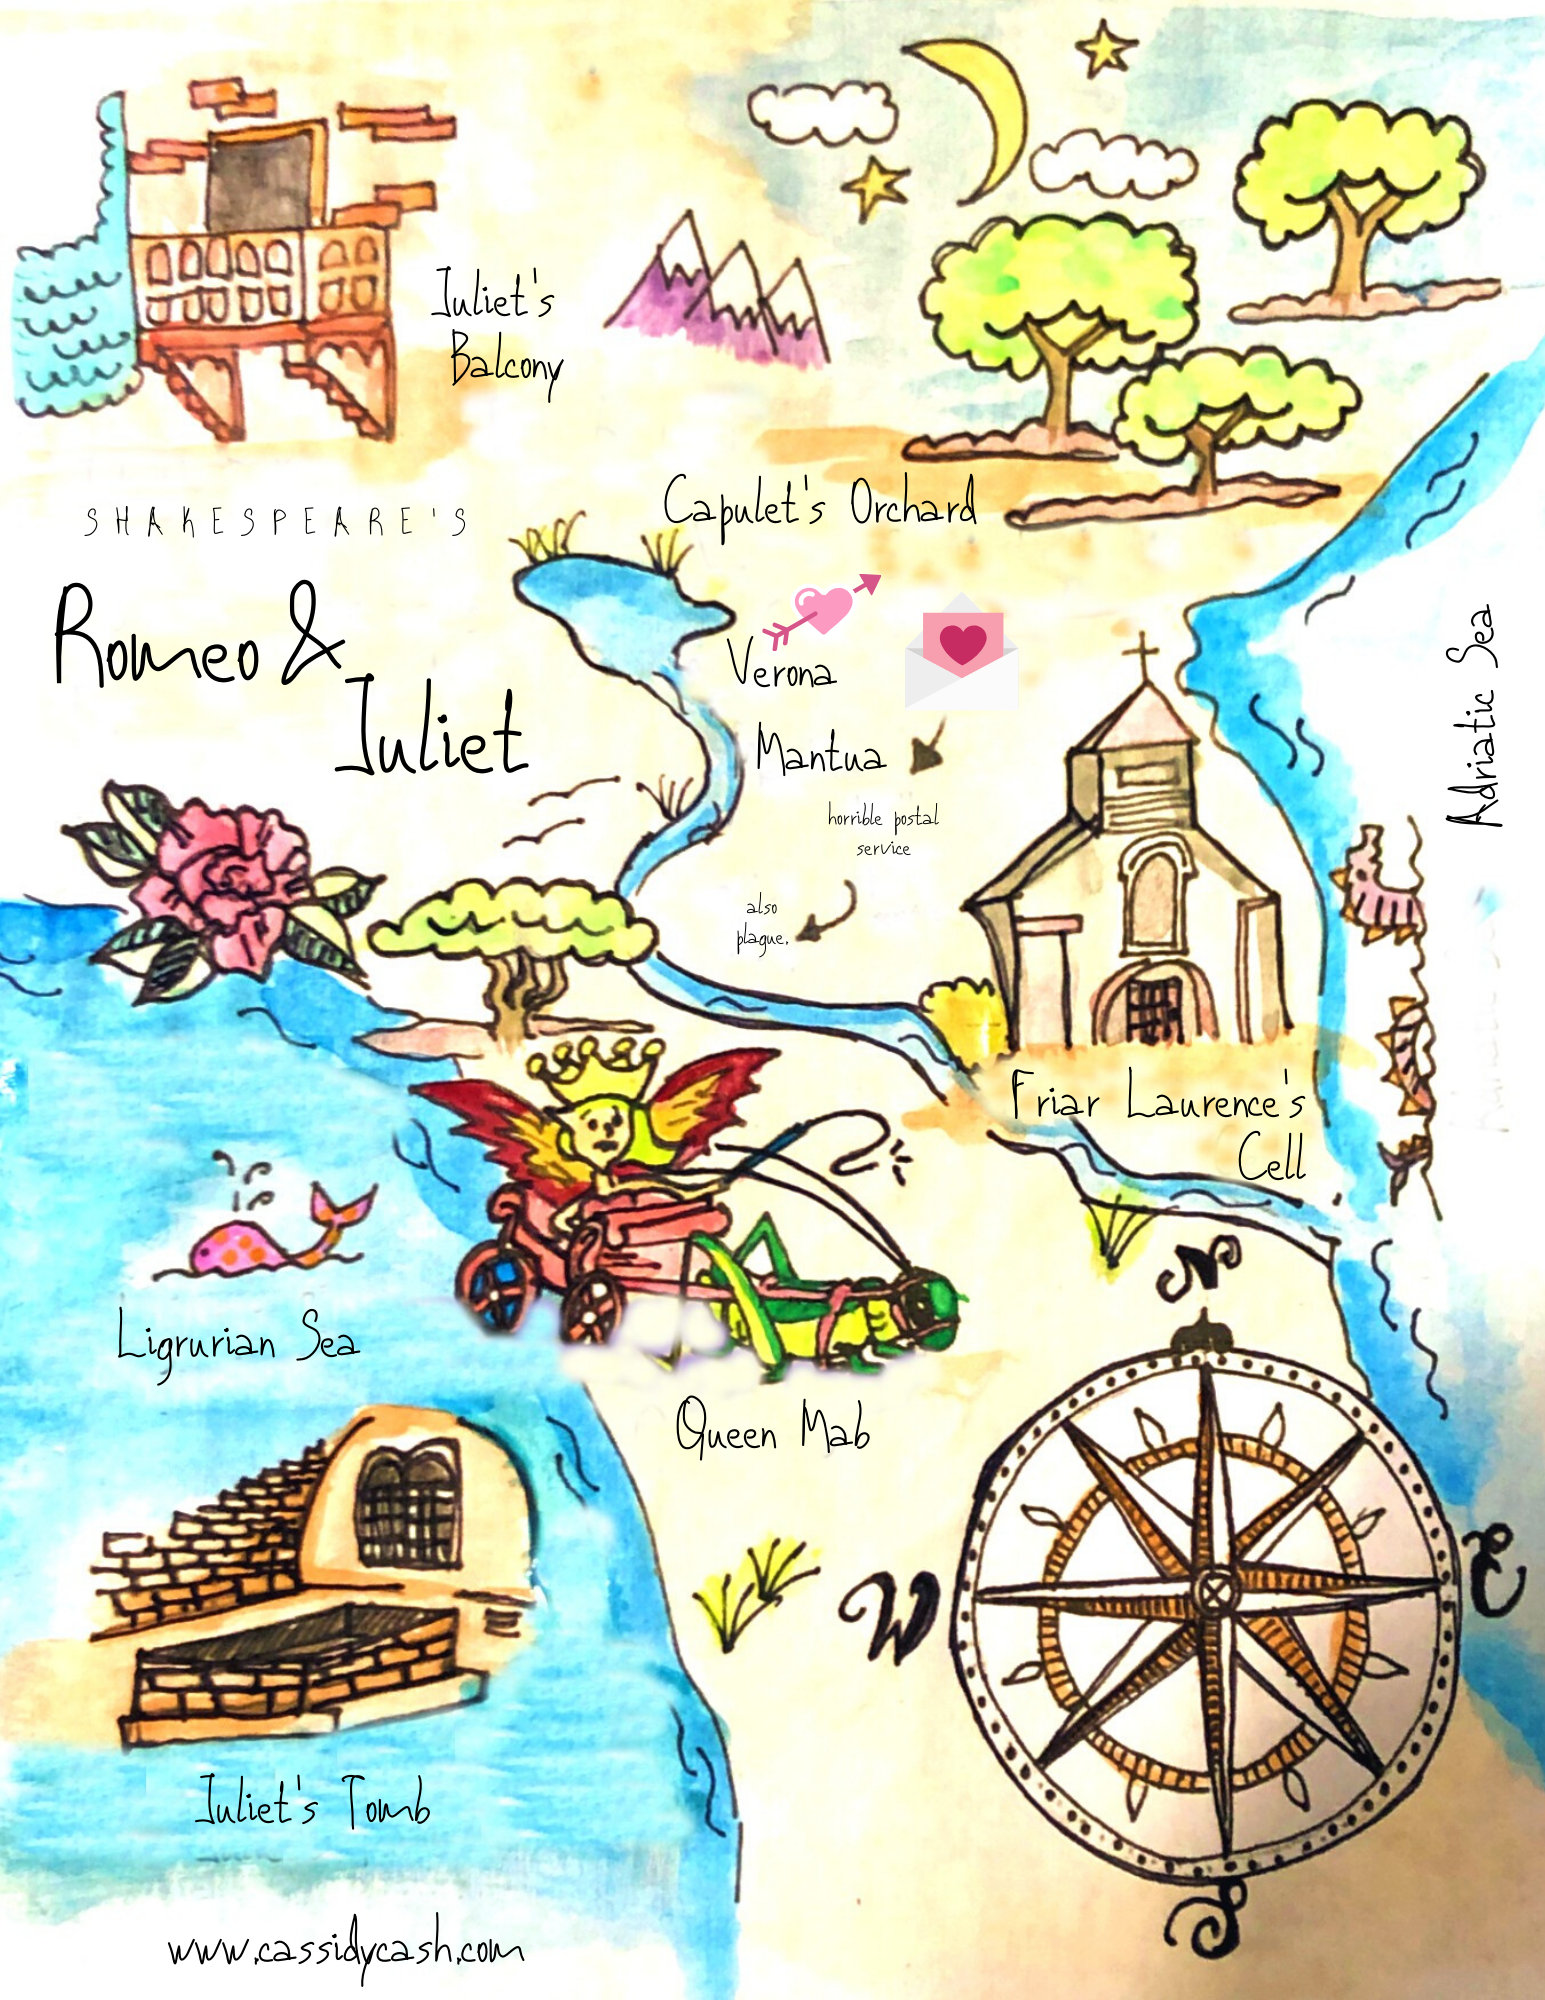 Juliet's
Balcony
Capulet's Orchard
SHAKESPEARE'S
Romeo &
Juliet
Verona
Mantua
horrible postal
service
also
plague.
Adriatic Sea
Friar Laurence's
Cell
Ligrurian Sea
Queen Mab
N
W
E
S
Juliet's Tomb
www.cassidycash.com